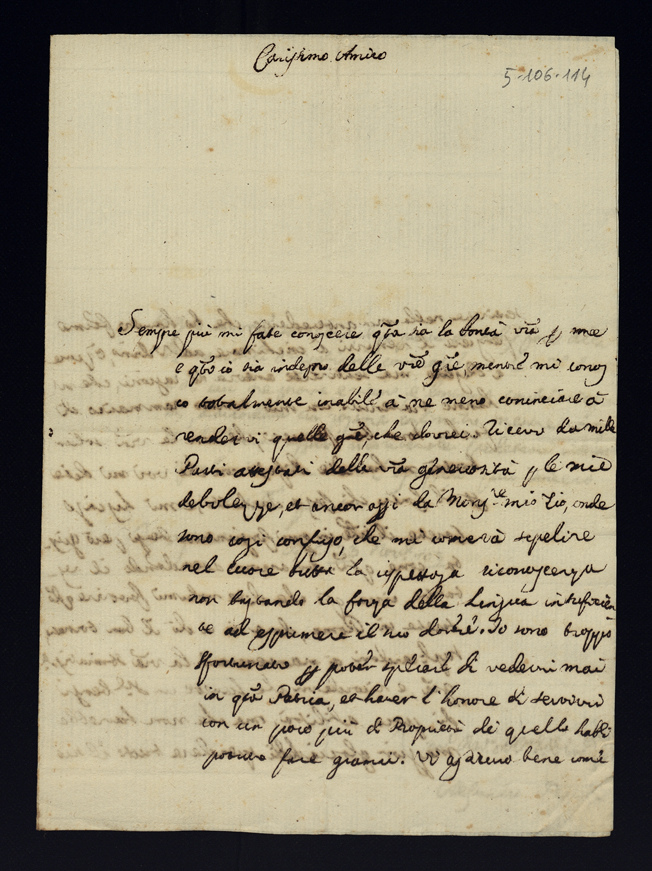 Carissmo Amico
5-106-114
Sempre più mi fate conoscere qta sia la bontà vra p me
e qto io sia indegno delle vre gre, mentre mi conos
co totalmente inabile à ne meno cominciare à
rendervi quelle gre, che dovrei. Ricevo da mille
Parti attestati della vra generosità p le mie
debolezze, et ancor oggi da Monsre mio Zio, onde
sono così confuso, che mi converà sepelire
nel cuore tutta la rispettosa riconoscenza
non bastando la forza della Lingua insuficien
te ad esprimere il suo dovere. Io sono troppo
sfortunato p poter sperare di vedervi mai
in qta Patria, et haver l'honore di servirvi
con un poco più di Proprietà di quello habbi
potuto fare giamai. Vi assicuro bene come